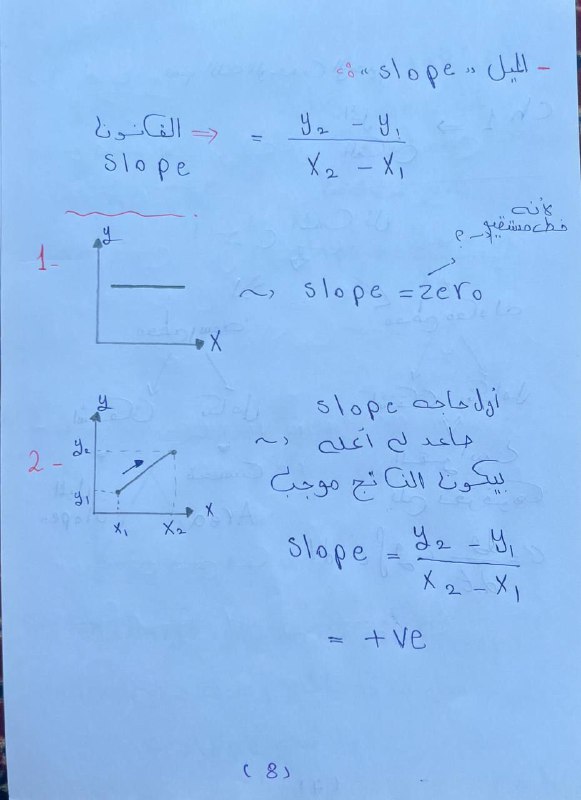 - الميل "slope" :
القانون ⇒ = y₂ - y₁ / x₂ - x₁
slope
لأنه
خط مستقيم
1-
y
x
~> slope = zero
2-
y
y₂
y₁
x₁ x₂ x
أول حاجه slope
~> صاعد لـ أعلى
بيكون الناتج موجب
slope = y₂ - y₁ / x₂ - x₁
= +ve
(8)